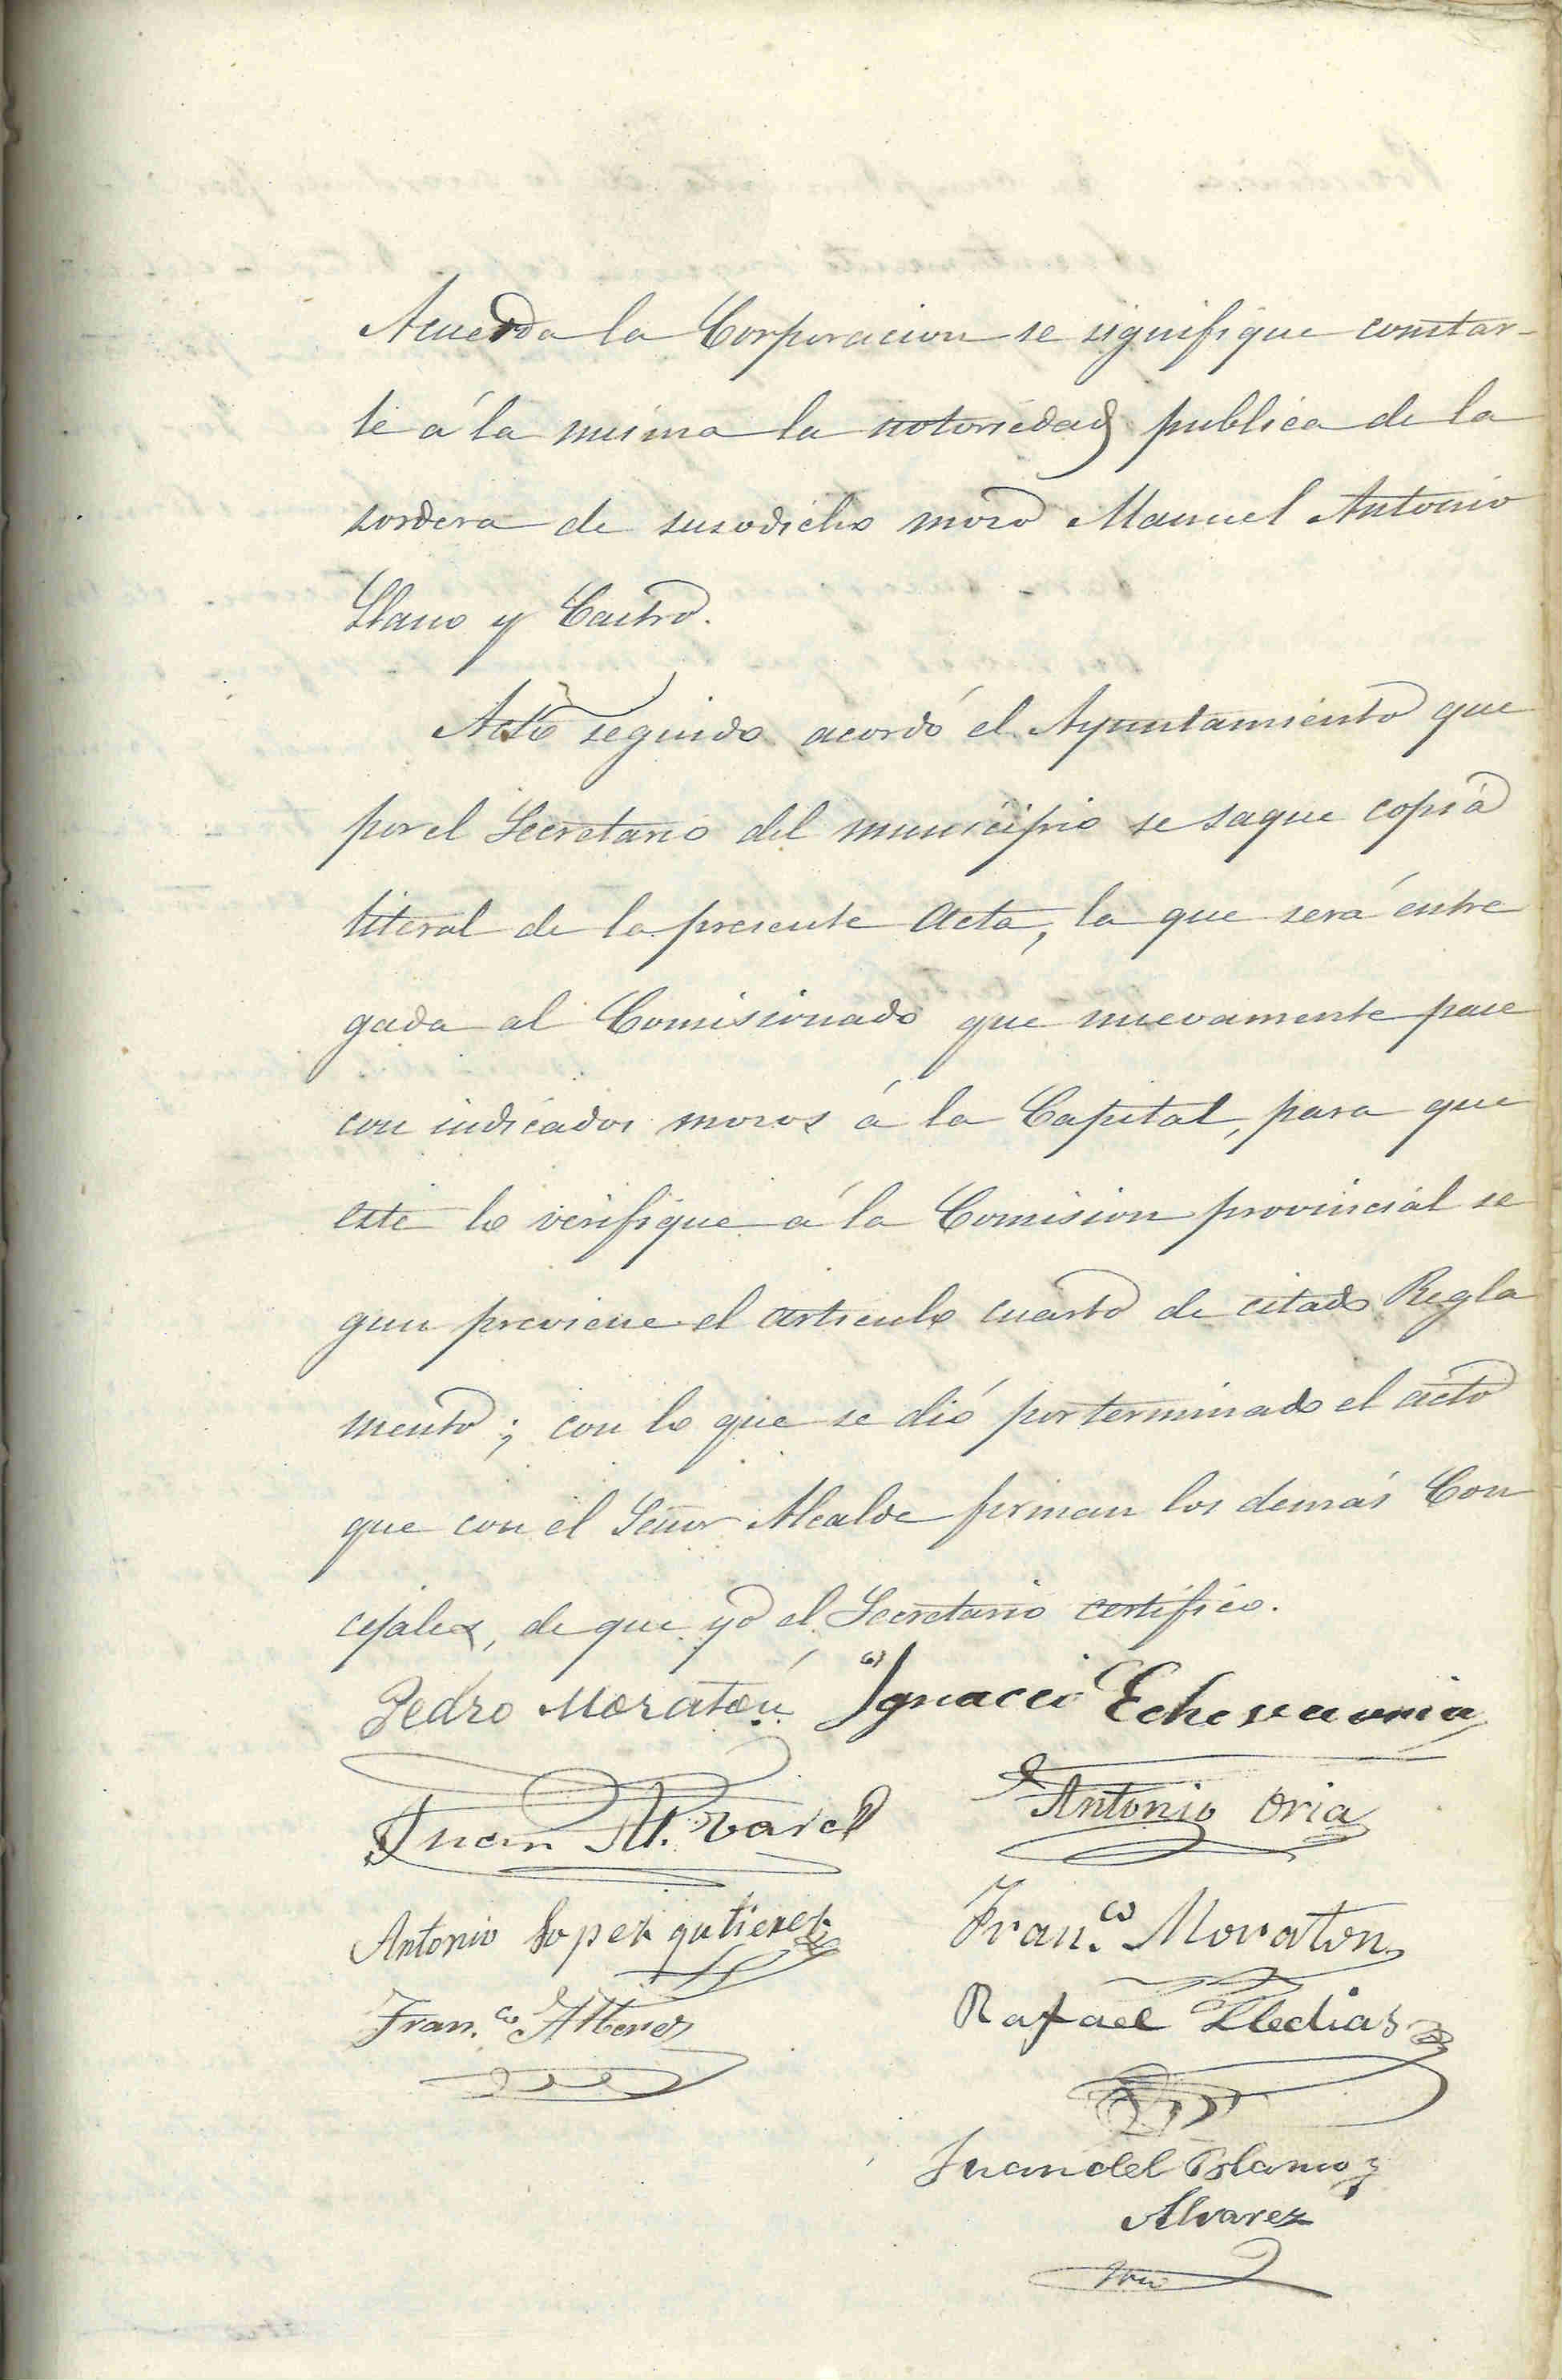 Acuerda la Corporacion se signifique constar-
le á la misma la notoriedad publica de la
sordera de susodicho mozo Manuel Antonio
Llano y Castro.
Acto seguido acordó el Ayuntamiento que
por el Secretario del municipio se saque copia
literal de la presente acta, la que será entre
gada al Comisionado que nuevamente pase
con indicados mozos á la Capital, para que
este lo verifique á la Comision provincial se
gun previene el articulo cuarto de citado Regla
mento; con lo que se dió por terminado el acto
que con el Señor Alcalde firman los demás Con
cejales, de que yo el Secretario certifico.
Pedro Moratón Ignacio Echevarria
Juan Antonio Oria
Antonio Lopez gutierez Fran.co Moraton
Fran.co Rafael
Juan del Blanco y
Alvarez
Srio